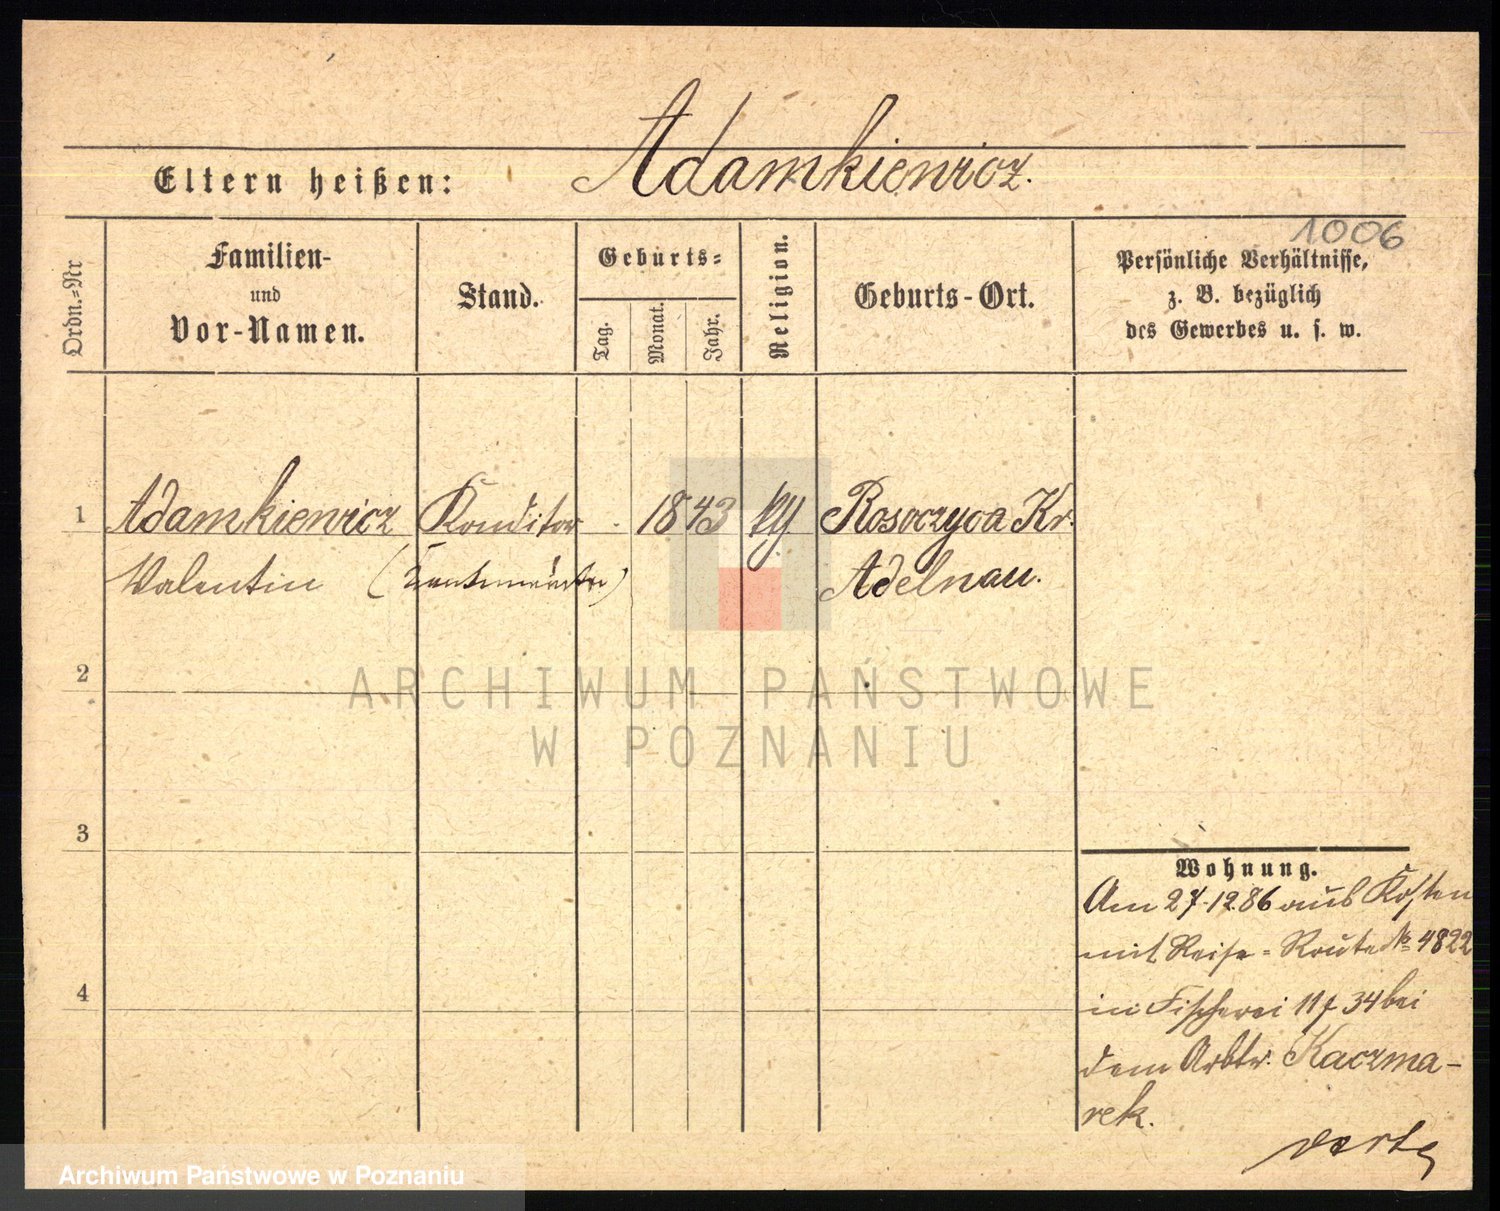 Adamkiewicz.
Eltern heißen:
1006
Ordn.=Nr
Familien-
und
Vor-Namen.
Stand.
Geburts=
Tag.
Monat.
Jahr.
Religion.
Geburts-Ort.
Persönliche Verhältnisse,
z. B. bezüglich
des Gewerbes u. s. w.
1 Adamkiewicz Konditor 1843 Rosoczyca Kr.
Valentin Adelnau.
2
ARCHIWUM PAŃSTWOWE
W POZNANIU
3
4
Wohnung.
Am 27.12.86 aus Kosten
mit Reise-Route № 4822
in Fischerei 11 34 bei
dem Arbtr. Kaczma-
rek.
Archiwum Państwowe w Poznaniu